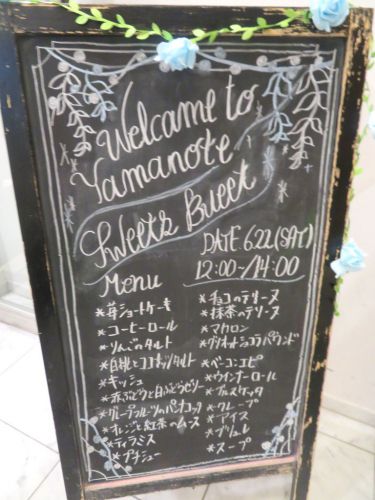 Welcome to
Yamanote
Sweets Bueet
DATE 6.22(SAT)
12:00~/14:00
Menu
*苺ショートケーキ
*コーヒーロール
*りんごのタルト
*白桃とココナッツタルト
*キッシュ
*赤ぶどうと白ぶどうゼリー
*グレープフルーツのパンナコッタ
*オレンジと紅茶のムース
*ティラミス
*プチシュー
*チョコのテリーヌ
*抹茶のテリーヌ
*マカロン
*グリオットショコラパウンド
*ベーコンエピ
*ウインナーロール
*ブルスケッタ
*クレープ
*アイス
*ブリュレ
*スープ